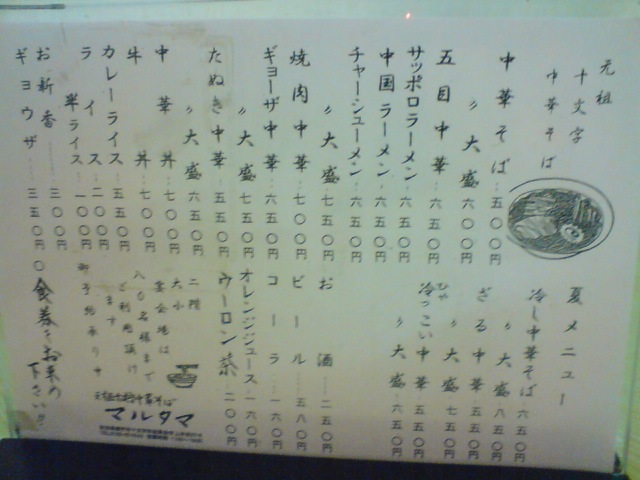 元祖
十文字
中華そば
中華そば 五〇〇円
〃大盛 六〇〇円
五目中華 六五〇円
サッポロラーメン 六五〇円
中国ラーメン 六五〇円
チャーシューメン 六五〇円
〃大盛 七五〇円
焼肉中華 七〇〇円
ギョーザ中華 六五〇円
〃大盛 七五〇円
たぬき中華 五五〇円
〃大盛 六五〇円
中華丼 七〇〇円
牛丼 七〇〇円
カレーライス 五五〇円
ライス 二〇〇円
半ライス 一〇〇円
お新香 三〇〇円
ギョウザ 三五〇円
夏メニュー
冷し中華そば 六五〇円
〃大盛 八五〇円
ざる中華 五五〇円
〃大盛 七五〇円
冷っこい中華 五五〇円
ひゃ
〃大盛 六五〇円
お酒 二五〇円
ビール 五八〇円
コーラ 一六〇円
オレンジジュース 一六〇円
ウーロン茶 二〇〇円
二階
大小
宴会場は
八〇名様まで
ご利用頂け
ます
御予約承り中
〇食券をお求め
下さいませ
元祖十文字中華そば
マルタマ